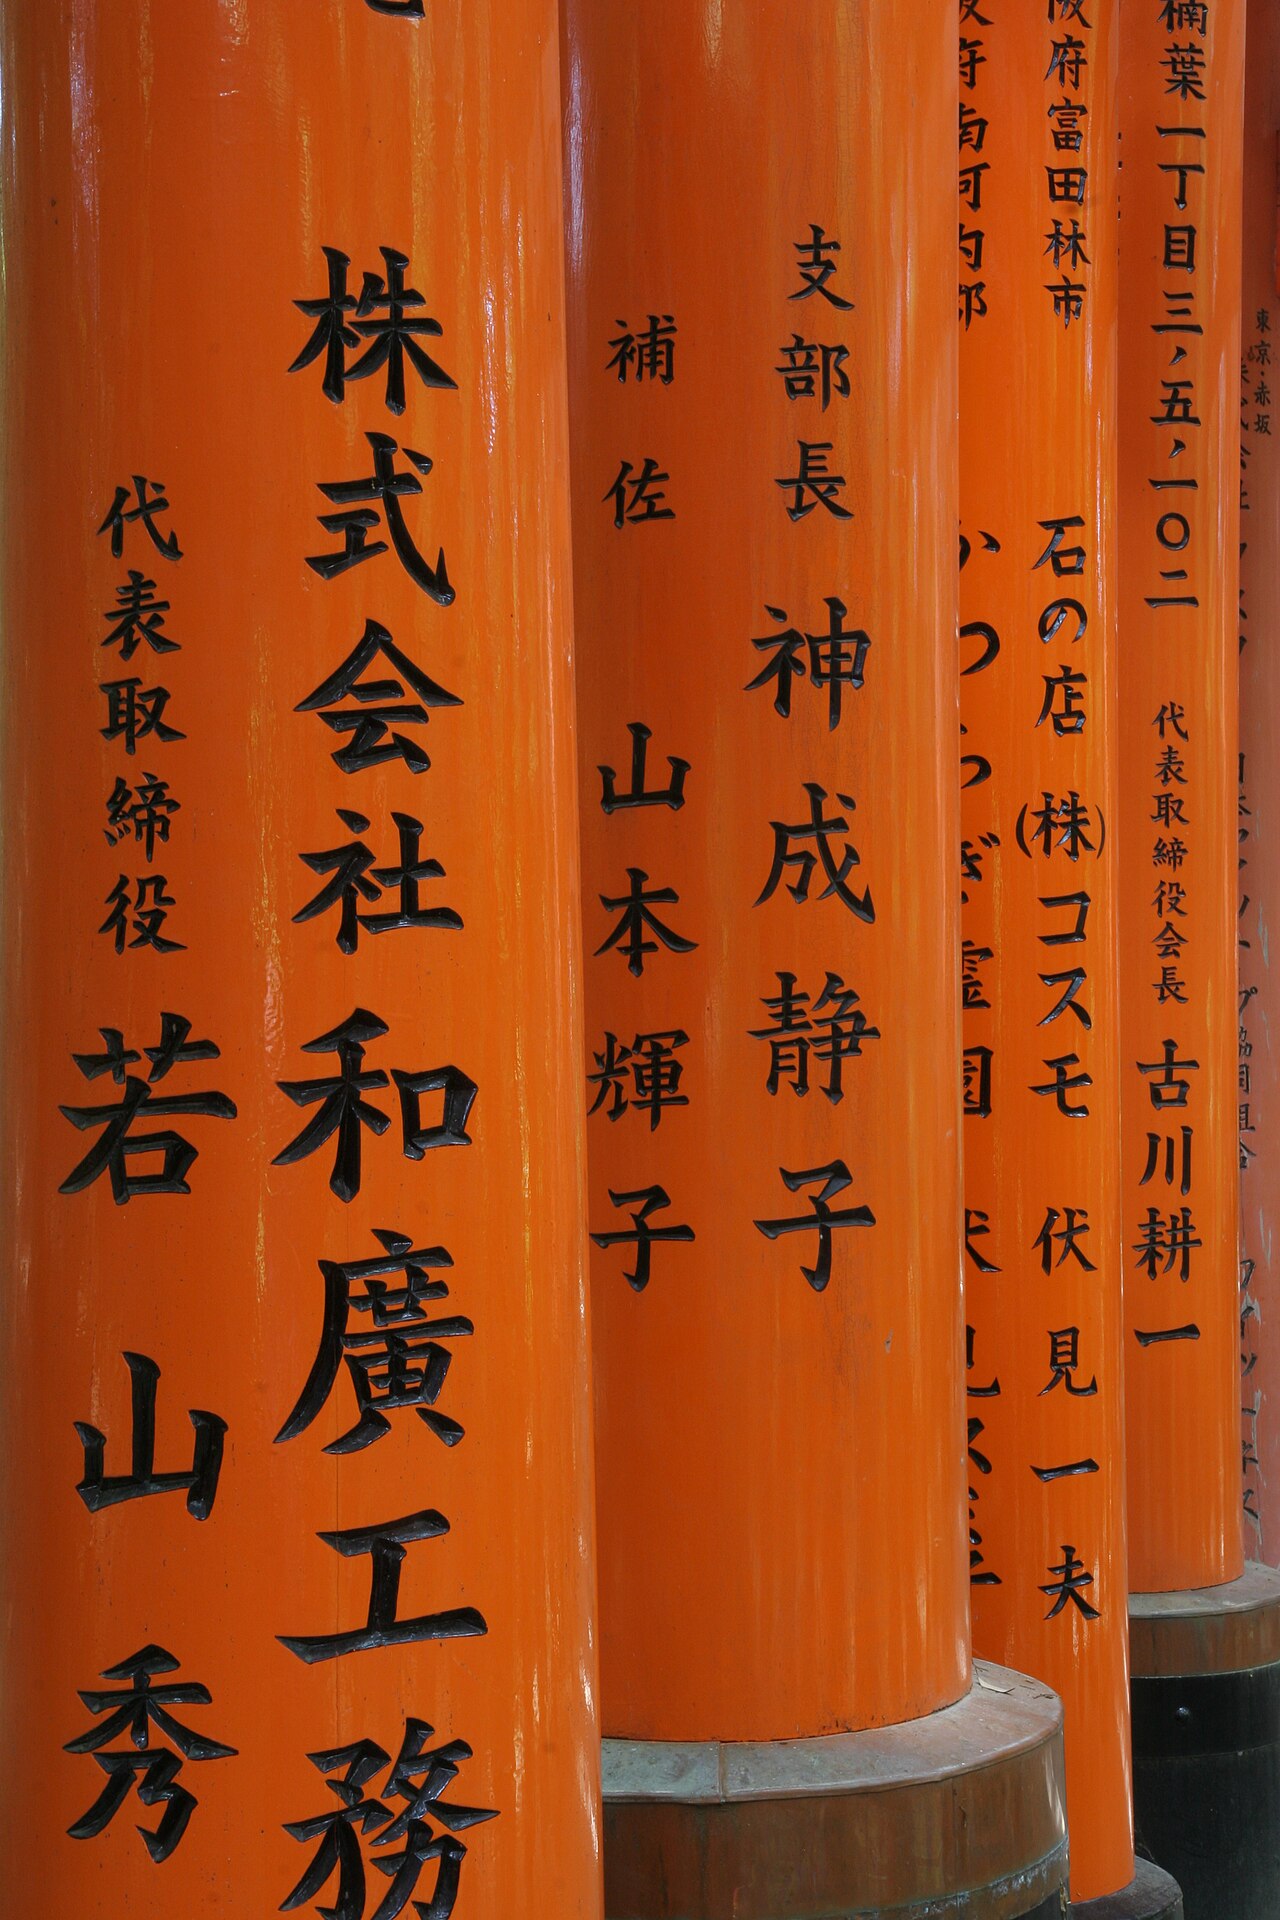 株式会社和廣工務
代表取締役 若山秀
支部長 神成静子
補佐 山本輝子
府富田林市 石の店 (株)コスモ 伏見一夫
府南河内郡 かつらぎ霊園 伏見
楠葉一丁目三ノ五ノ一〇二 代表取締役会長 古川耕一
東京・赤坂